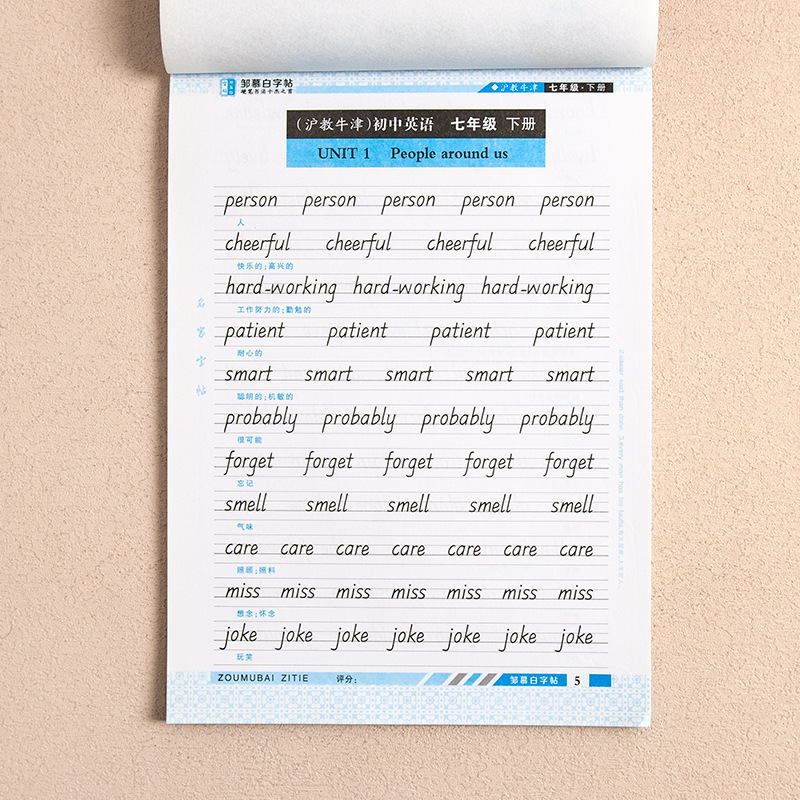 邹慕白字帖
硬笔书法十杰之首
◆沪教牛津 七年级·下册
(沪教牛津)初中英语 七年级 下册
UNIT 1 People around us
person person person person person
人
cheerful cheerful cheerful cheerful
快乐的;高兴的
hard-working hard-working hard-working
工作努力的;勤勉的
patient patient patient patient
耐心的
smart smart smart smart smart
聪明的;机敏的
probably probably probably probably
很可能
forget forget forget forget forget
忘记
smell smell smell smell smell
气味
care care care care care care care
照顾;照料
miss miss miss miss miss miss miss
想念;怀念
joke joke joke joke joke joke joke
玩笑
名家字帖
Easier said than done. Every man has his faults.
ZOUMUBAI ZITIE 评分: 邹慕白字帖 5